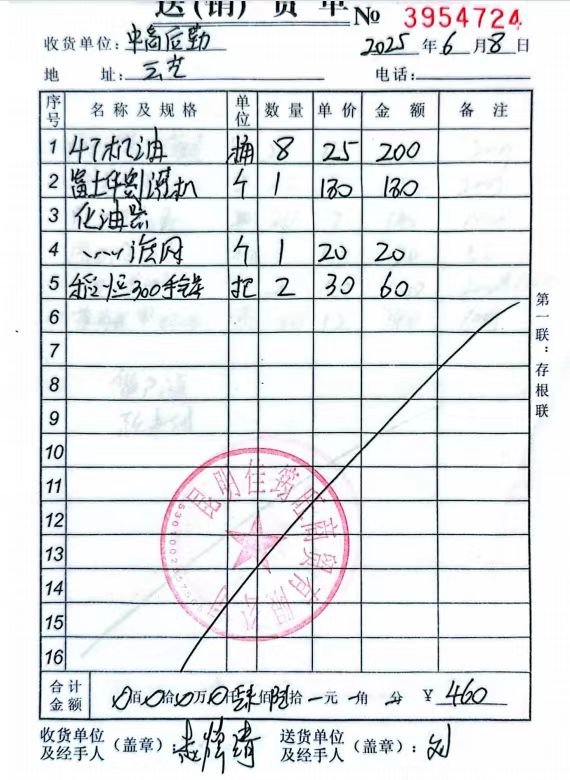 送(销)货单 № 3954724
收货单位: 2025年6月8日
地 址: 电话:
序号 名称及规格 单位 数量 单价 金额 备注
1 4T机油 桶 8 25 200
2 富士华割灌机 个 1 180 180
3 化油器
4 〃〃〃滤网 个 1 20 20
5 300手锯 把 2 30 60
6
7
8
9
10
11
12
13
14
15
16
第一联:存根联
合计金额 0佰0拾0万0仟肆佰陆拾 元 角 分 ¥ 460
收货单位及经手人(盖章): 送货单位及经手人(盖章): 刘